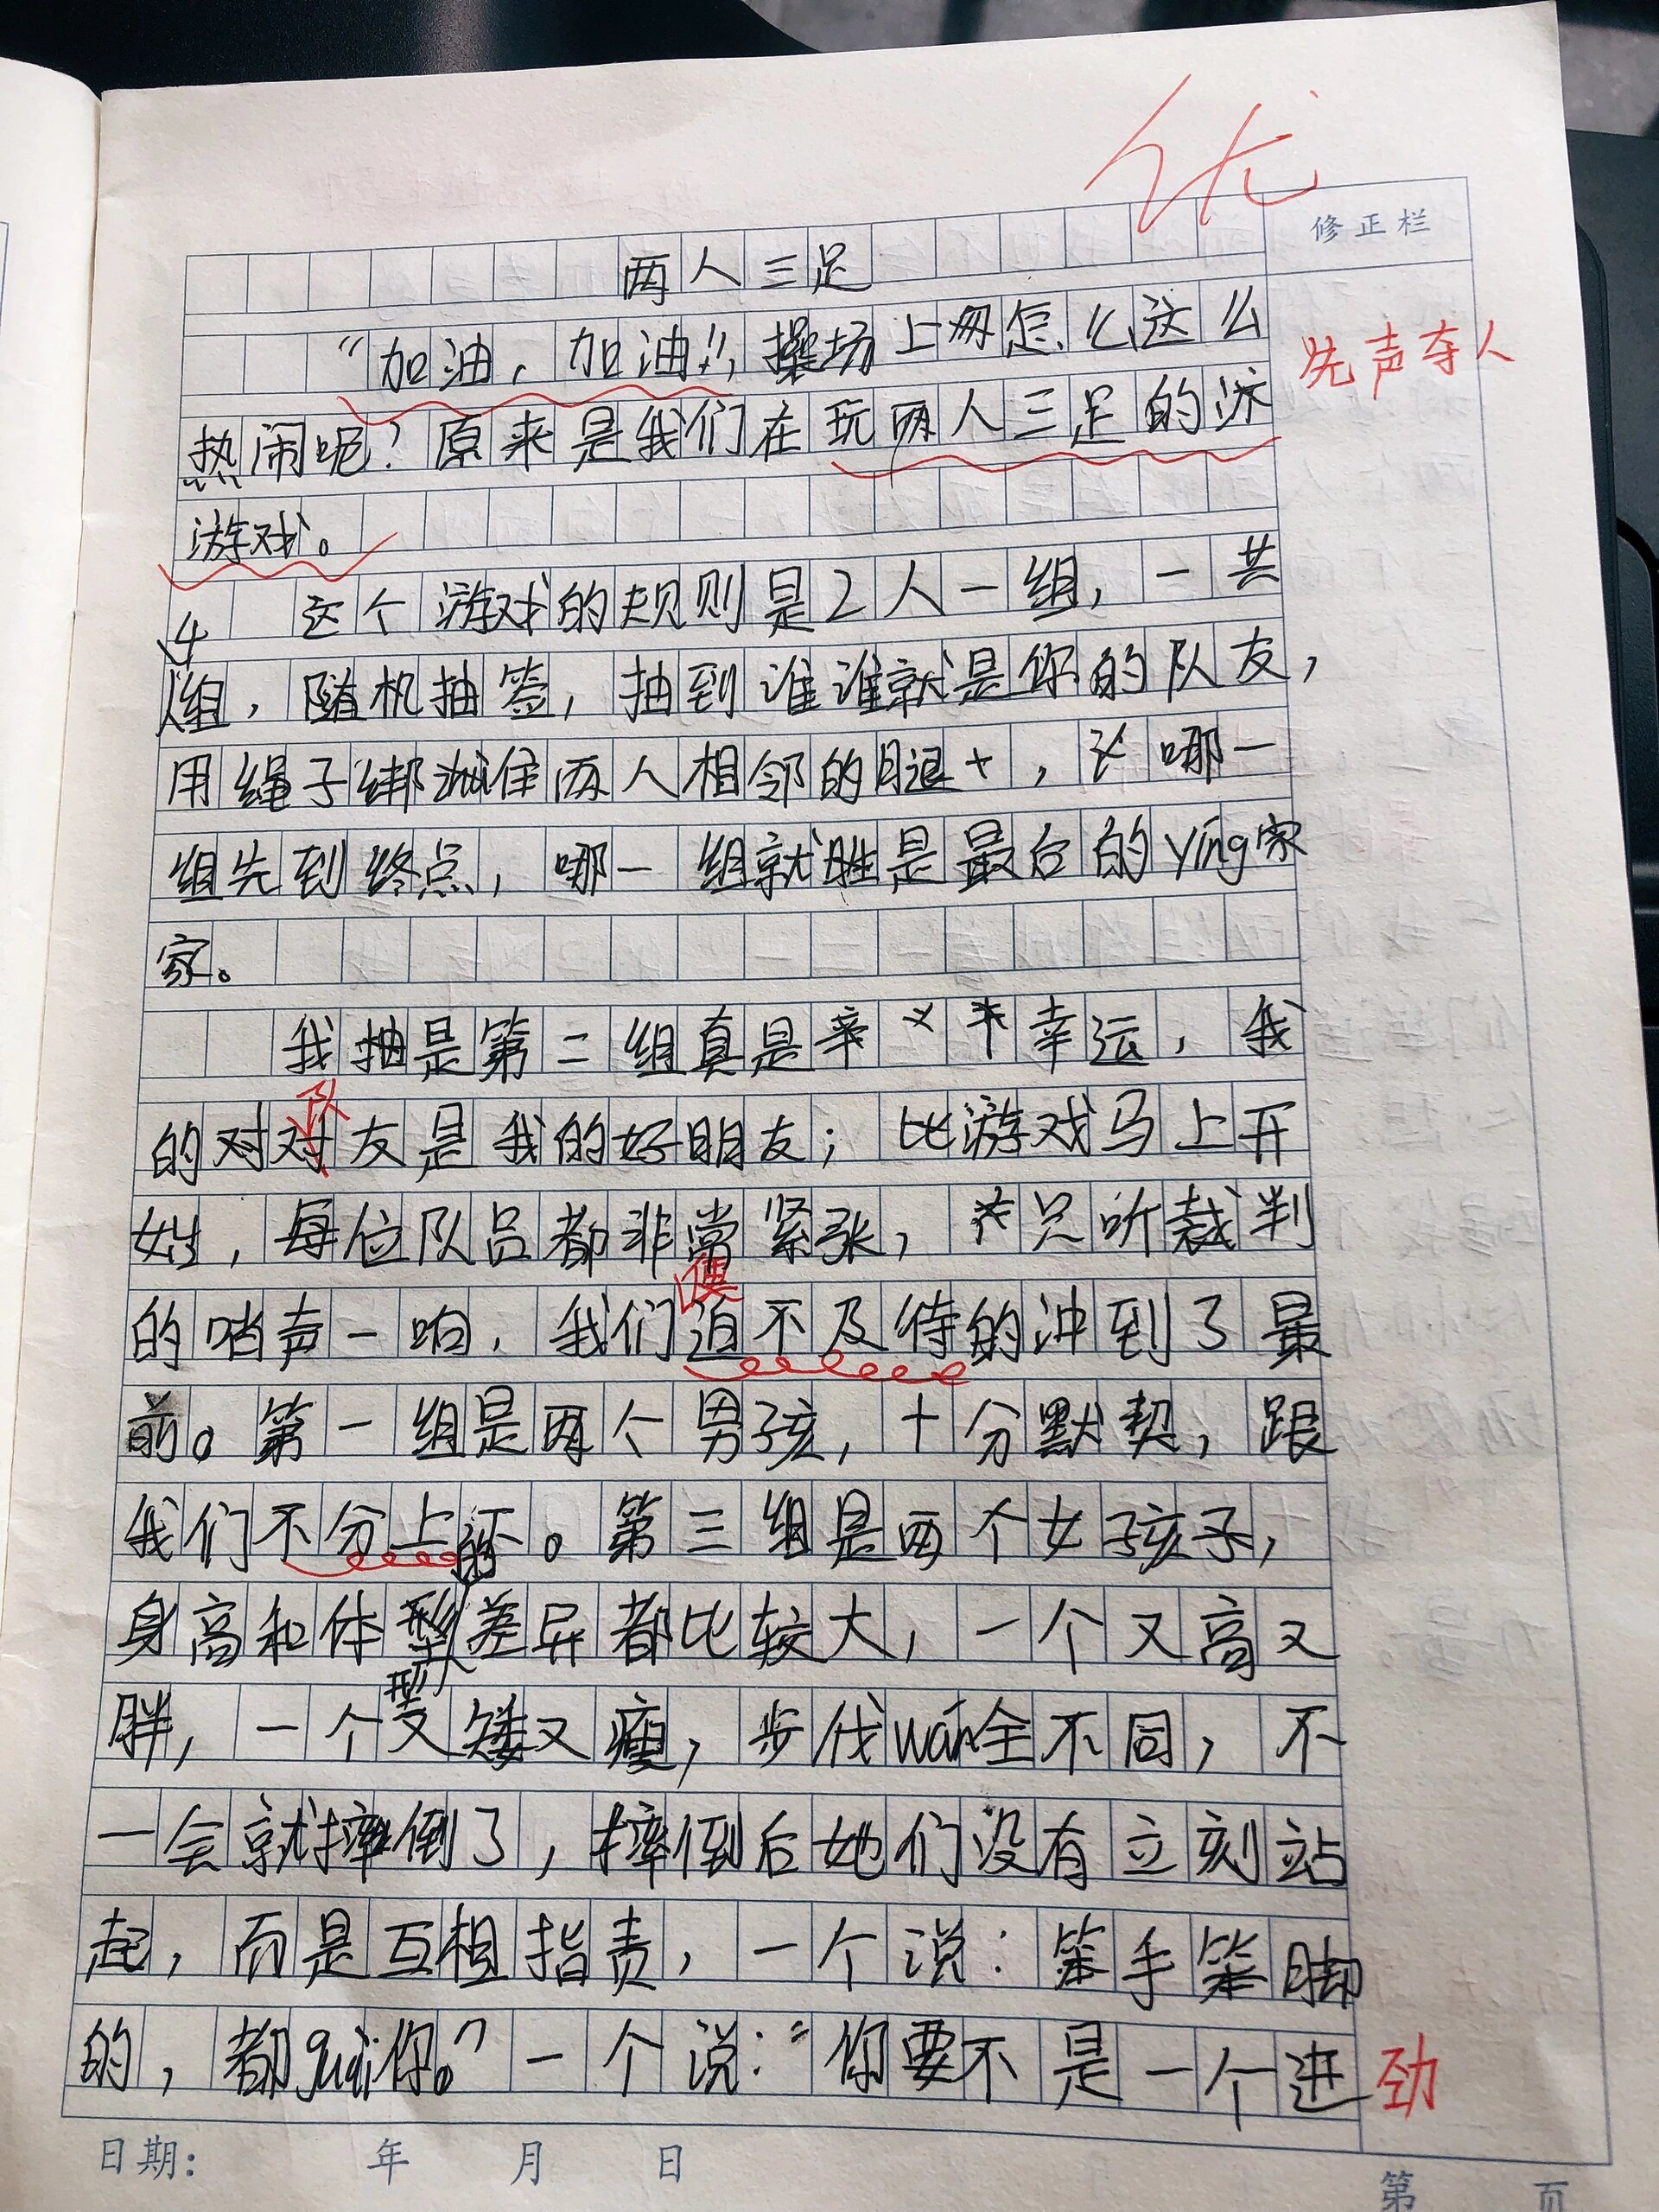 优
修正栏
两人三足
“加油，加油！”操场上怎么这么
先声夺人
热闹呢？原来是我们在玩两人三足的
游戏。
这个游戏的规则是2人一组，一共
4
组，随机抽签，抽到谁谁就是你的队友，
用绳子绑住两人相邻的腿，哪一
组先到终点，哪一组就是最后的yíng家
家。
我抽是第二组真是幸运，我
的对队友是我的好朋友；比游戏马上开
始，每位队员都非常紧张，只听裁判
便
的哨声一响，我们迫不及待的冲到了最
前。第一组是两个男孩，十分默契，跟
我们不分上下。第三组是两个女孩子，
的
身高和体型差异都比较大，一个又高又
型
胖，一个又矮又瘦，步伐wán全不同，不
一会就摔倒了，摔倒后她们没有立刻站
起，而是互相指责，一个说：笨手笨脚
的，都guài你。”一个说：“你要不是一个进
劲
日期： 年 月 日
第 页